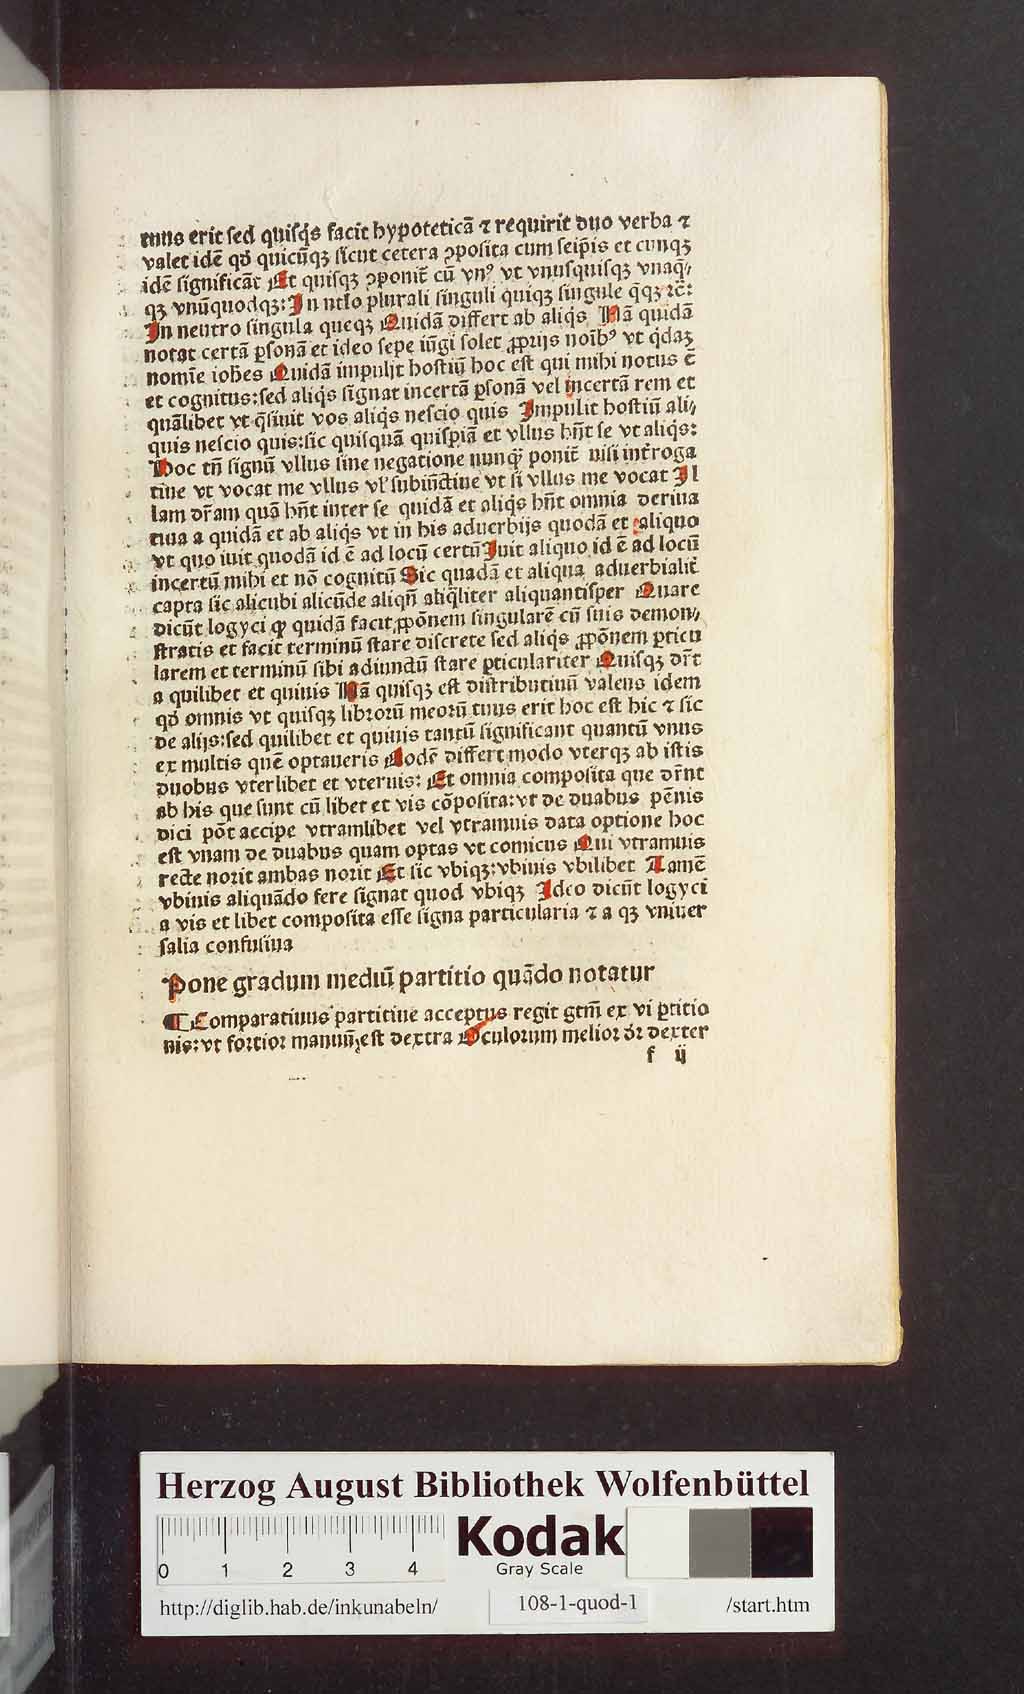 tuus erit sed quisq̇s facit hypoteticā ⁊ requirit duo verba ⁊
valet idē qđ quicūqꝫ sicut cetera ꝯposita cum seip̄is et cunqꝫ
idē significāt Et quisqꝫ ꝯponit̄ cū vnꝰ vt vnusquisqꝫ vnaq̄⸗
qꝫ vnūquodqꝫ: In nt̄o plurali singuli quiqꝫ singule q̄qꝫ ⁊c̄:
In neutro singula queqꝫ Quidā differt ab aliq̇s Nā quidā
notat certā ꝑsonā et ideo sepe iūgi solet ꝓprijs noibꝰ vt q̇daꝫ
nomīe ioħes Quidā impulit hostiū hoc est qui mihi notus ē
et cognitus: sed aliq̇s signat incertā ꝑsonā vel incertā rem et
quālibet vt q̄siuit vos aliq̇s nescio quis Impulit hostiū ali⸗
quis nescio quis: sic quisquā quispiā et vllus hn̄t se vt aliq̇s:
Hoc tn̄ signū vllus sine negatione nunqꝫ ponit̄ nisi int̄roga
tiue vt vocat me vllus vl' subiūctiue vt si vllus me vocat Il
lam dr̄am quā hn̄t inter se quidā et aliq̇s hn̄t omnia deriua
tiua a quidā et ab aliq̇s vt in his aduerbijs quodā et aliquo
vt quo iuit quodā id ē ad locū certū Iuit aliquo id ē ad locū
incertū mihi et nō cognitū Sic quadā et aliqua aduerbialit̄
capta sic alicubi alicūde aliqn̄ aliq̄liter aliquantisper Quare
dicūt logyci ꝙ quidā facit ꝓpōnem singularē cū suis demon⸗
stratis et facit terminū stare discrete sed aliq̇s ꝓpōnem ꝑticu
larem et terminū sibi adiunctū stare ꝑticulariter Quisqꝫ dr̄t
a quilibet et quiuis Nā quisqꝫ est distributiuū valens idem
qđ omnis vt quisqꝫ librorū meorū tuus erit hoc est hic ⁊ sic
de alijs: sed quilibet et quiuis tantū significant quantū vnus
ex multis quē optaueris Eodē differt modo vterqꝫ ab istis
duobus vterlibet et vteruis: Et omnia composita que dr̄nt
ab his que sunt cū libet et vis cōposita: vt de duabus pēnis
dici pōt accipe vtramlibet vel vtramuis data optione hoc
est vnam de duabus quam optas vt comicus Qui vtramuis
recte norit ambas norit Et sic vbiqꝫ: vbiuis vbilibet Tamē
vbiuis aliquādo fere signat quod vbiqꝫ Ideo dicūt logyci
a vis et libet composita esse signa particularia ⁊ a qꝫ vniuer
salia confusiua
Pone gradum mediū partitio quādo notatur
¶ Comparatiuus partitiue acceptus regit gtm̄ ex vi ꝑtitio
nis: vt fortior manuū est dextra Oculorum melior dr̄ dexter
f ij
Herzog August Bibliothek Wolfenbüttel
0 1 2 3 4
Kodak
Gray Scale
http://diglib.hab.de/inkunabeln/ 108-1-quod-1 /start.htm